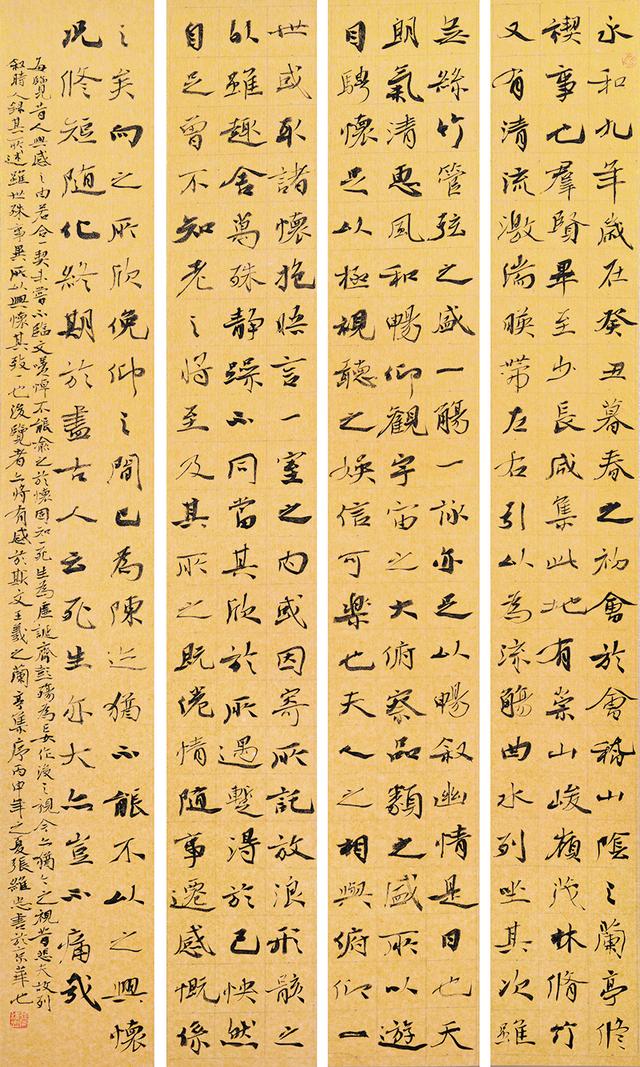 永和九年歲在癸丑暮春之初會於會稽山陰之蘭亭修
禊事也羣賢畢至少長咸集此地有崇山峻領茂林脩竹
又有清流激湍映帶左右引以為流觴曲水列坐其次雖
無絲竹管弦之盛一觴一詠亦足以暢敘幽情是日也天
朗氣清惠風和暢仰觀宇宙之大俯察品類之盛所以遊
目騁懷足以極視聽之娛信可樂也夫人之相與俯仰一
世或取諸懷抱晤言一室之內或因寄所託放浪形骸之
外雖趣舍萬殊靜躁不同當其欣於所遇暫得於己快然
自足曾不知老之將至及其所之既倦情隨事遷感慨係
之矣向之所欣俛仰之間已為陳迹猶不能不以之興懷
況修短隨化終期於盡古人云死生亦大矣豈不痛哉
每覽昔人興感之由若合一契未嘗不臨文嗟悼不能喻之於懷固知一死生為虛誕齊彭殤為妄作後之視今亦猶今之視昔悲夫故列
敘時人錄其所述雖世殊事異所以興懷其致一也後覽者亦將有感於斯文王羲之蘭亭集序丙申年之夏張維忠書於京華也